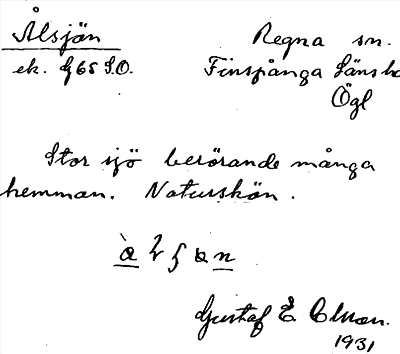 Ålsjön Regna sn.
ek. G65 S.O. Finspånga Länsh
Ögl
Stor sjö berörande många
hemman. Naturskön.
Gustaf E.
1931